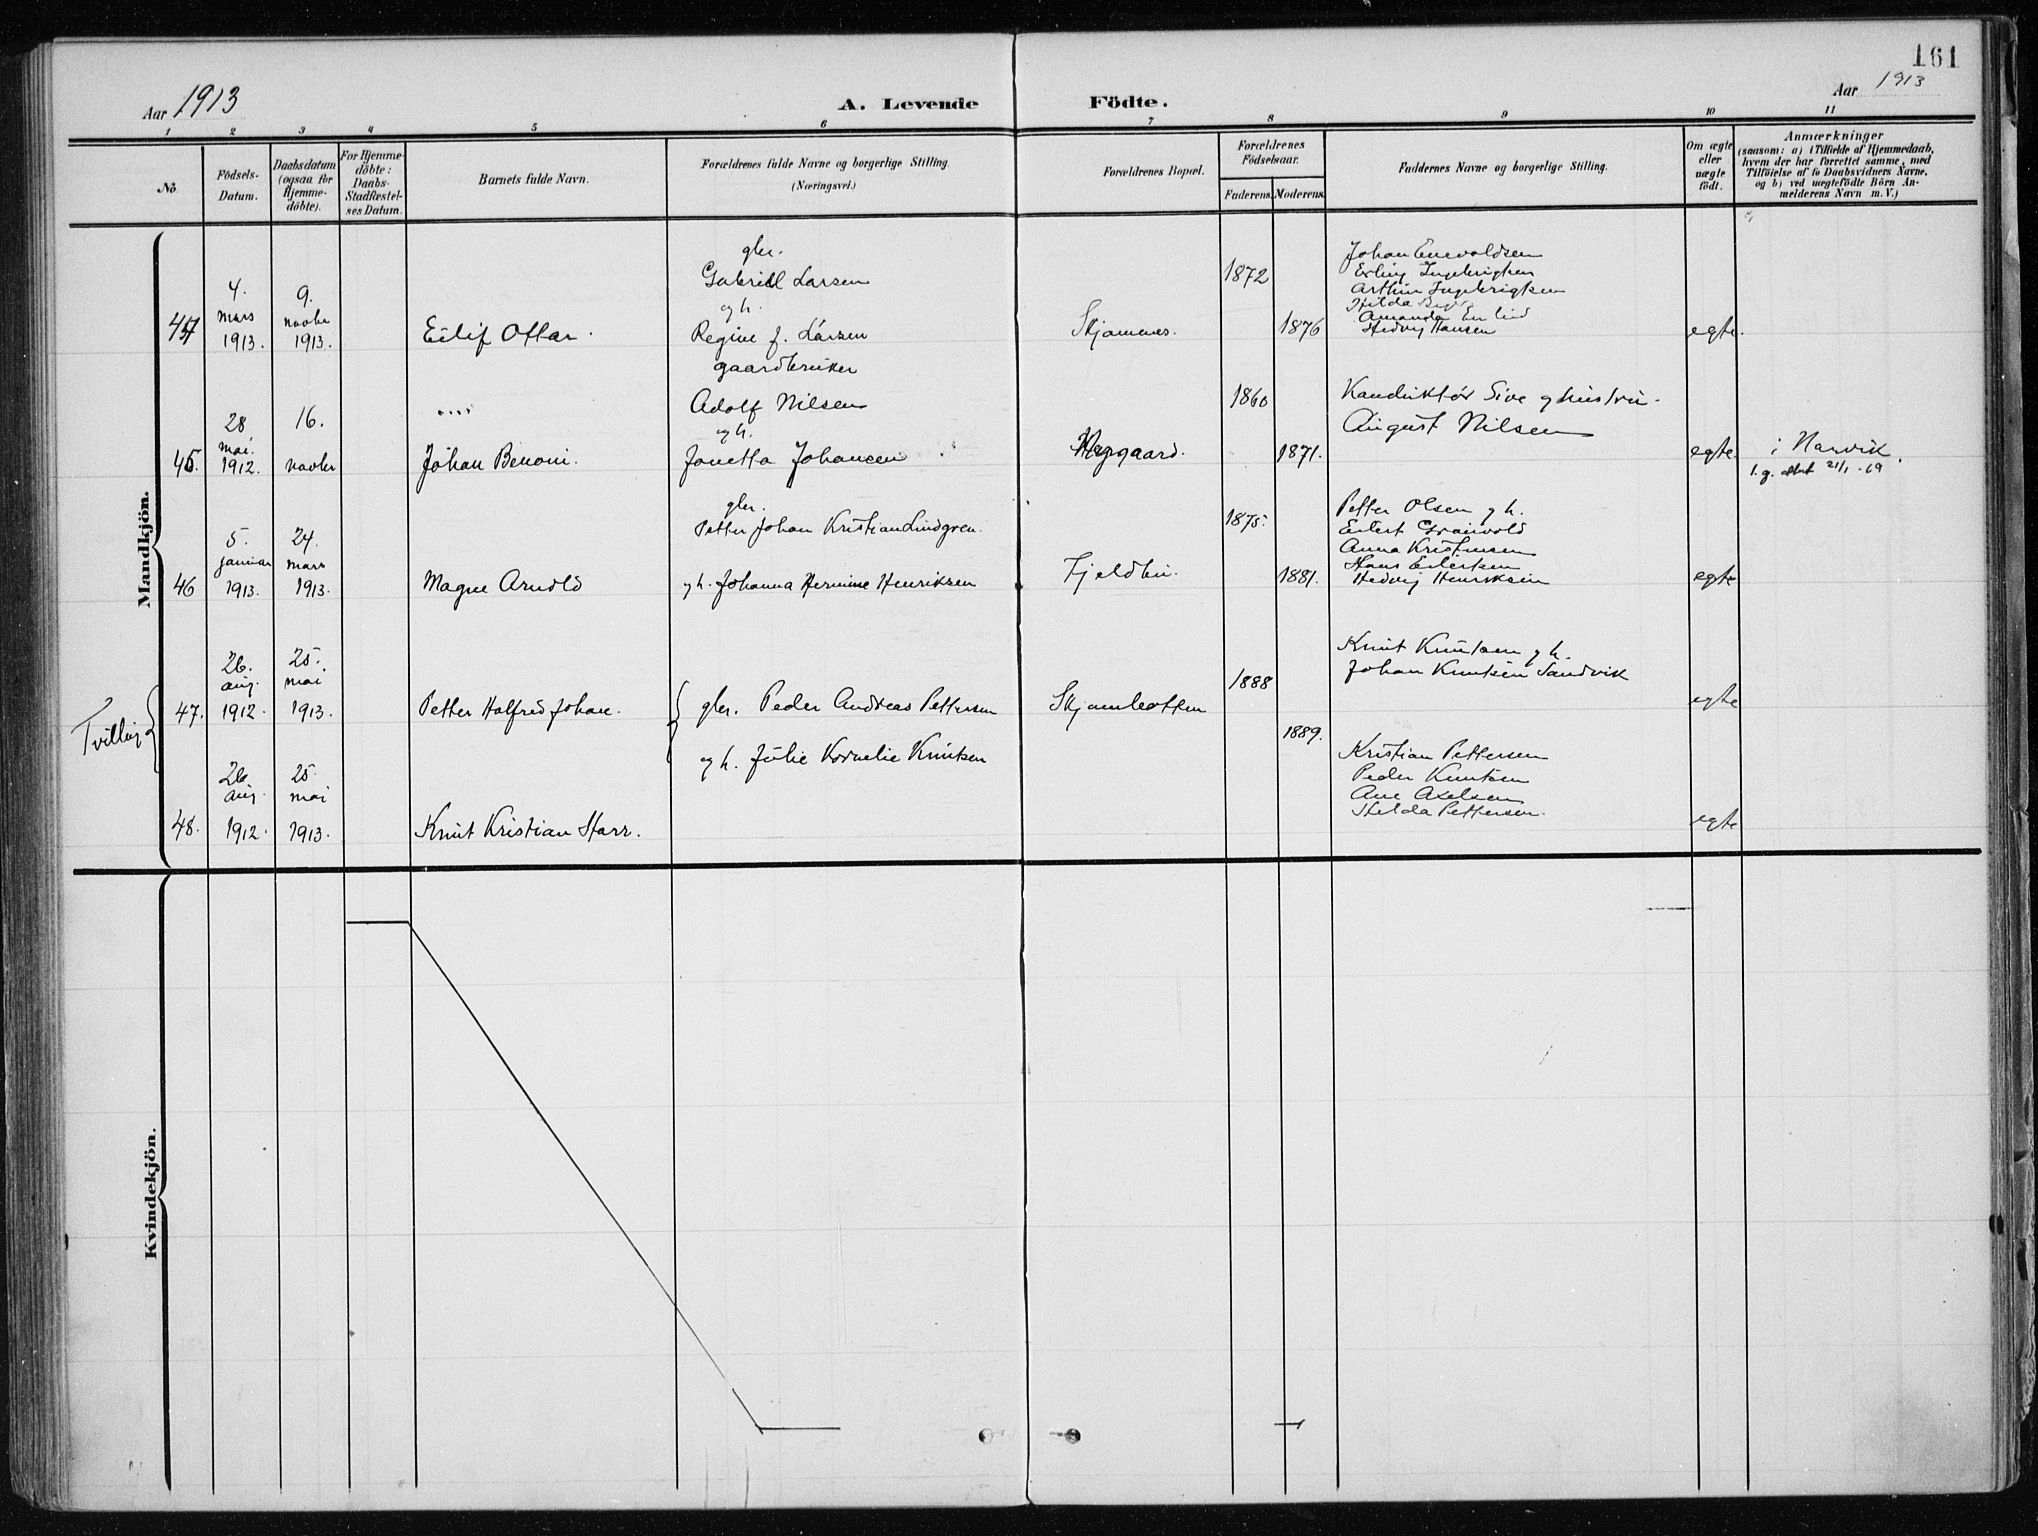 161
Aar 1913
A. Levende Födte.
Aar 1913
1 2 3 4 5 6 7 8 9 10 11
No.
Födsels-Datum.
Daabsdatum (ogsaa for Hjemme-döbte).
For Hjemme-döbte: Daabs-Stadfæstel-ses Datum.
Barnets fulde Navn.
Forældrenes fulde Navne og borgerlige Stilling.
(Næringsvei.)
Forældrenes Bopæl.
Forældrenes Födselsaar.
Faderens. Moderens.
Faddernes Navne og borgerlige Stilling.
Om ægte eller uægte födt.
Anmærkninger
(saasom: a) i Tilfælde af Hjemmedaab,
hvem der har forrettet samme, med
Tilföielse af to Daabsvidners Navne,
og b) ved uægtefödte Börn An-
melderens Navn m. V.)
Mandkjön.
4. mars 1913.
9. novbr 1913.
Eilif Ottar.
gbr.
Gabriel Larsen
og h.
Regine f. Larsen
Skjomnes.
1872
1876
Johan Enevoldsen
Erling Ingebrigtsen
Arthur Ingebrigtsen
Hilda
Amanda
Hedvig Hansen
egte.
45.
28 mai. 1912.
16. novbr
....
Johan Benoni.
gaardbruker
Adolf Nilsen
og h.
Jonetta Johansen
1860
1871.
Konduktör Sive og hustru.
August Nilsen
egte
i Narvik.
21/1-69
46
5. januar 1913.
24. mars 1913.
Magne Arnold
gbr.
Petter Johan Kristian Lindgren.
og h. Johanna Hermine Henriksen
Fjeldbu.
1875.
1881.
Petter Olsen og h.
Eilert
Anna Kristensen
Hans Eilertsen
Hedvig Henriksen
egte
Tvilling
47.
26. aug. 1912.
25. mai 1913.
Petter Halfred Johan.
gbr. Peder Andreas Pettersen
og h. Julie Kornelie Knutsen
Skjombotten
1888
1889.
Knut Knutsen og h.
Johan Knutsen Sandvik
egte
48.
26. aug. 1912.
25. mai 1913.
Knut Kristian Starr.
Kristian Pettersen
Peder Knutsen
Ane Axelsen
Hilda Pettersen.
egte
Kvindekjön.